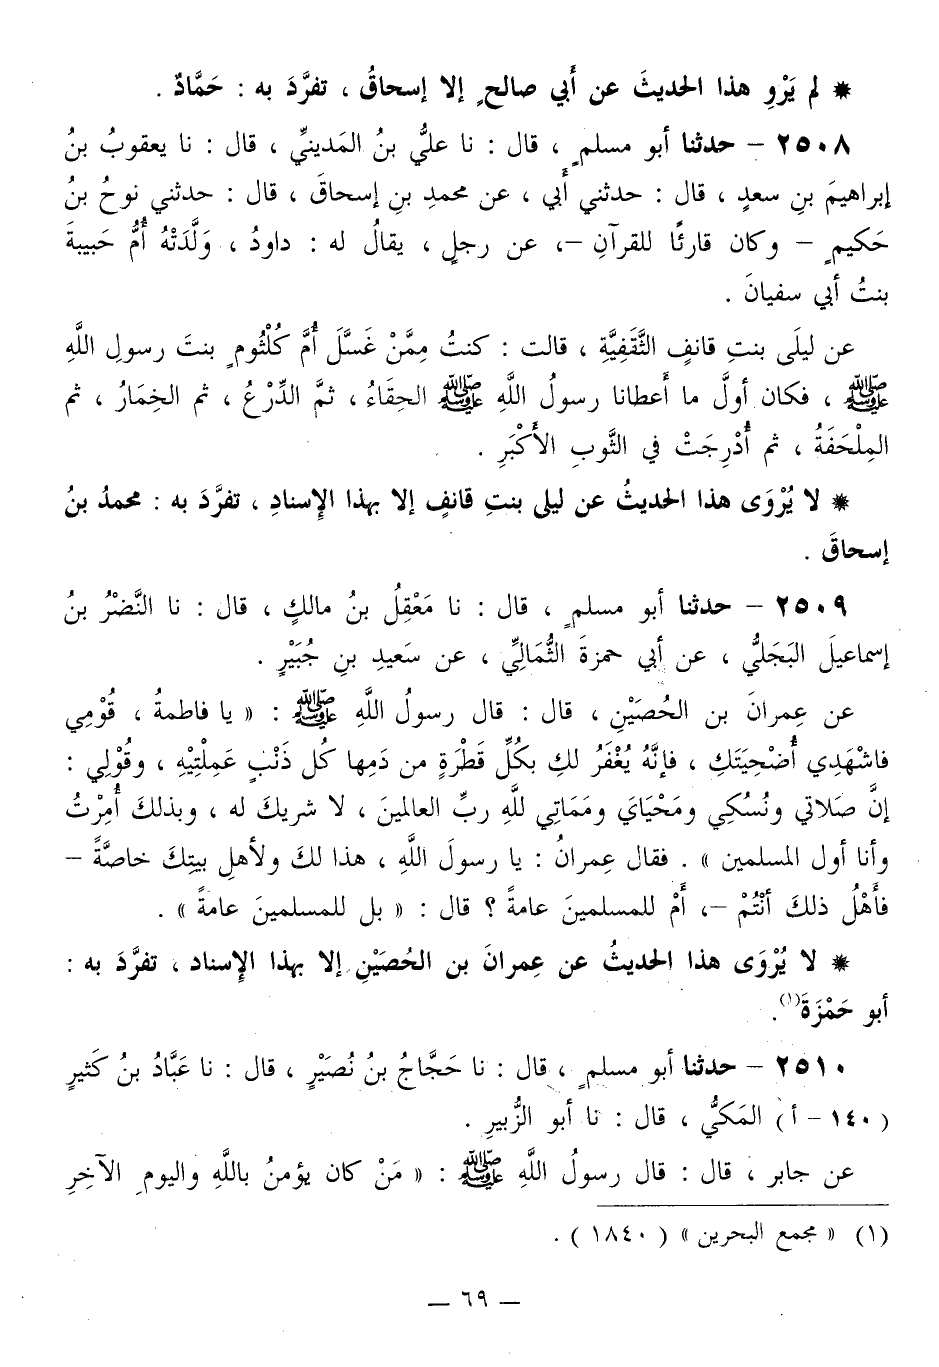 * لم يَرْوِ هذا الحديثَ عن أَبي صالحٍ إلا إسحاقُ ، تفرَّدَ به : حَمَّادٌ .
٢٥٠٨ – حدثنا أبو مسلمٍ ، قال : نا عليُّ بنُ المَدينيِّ ، قال : نا يعقوبُ بنُ
إبراهيمَ بنِ سعدٍ ، قال : حدثني أَبي ، عن محمدِ بنِ إسحاقَ ، قال : حدثني نوحُ بنُ
حَكيمٍ – وكان قارئًا للقرآنِ –، عن رجلٍ ، يقالُ له : داودُ ، وَلَّدَتْهُ أُمُّ حَبيبةَ
بنتُ أبي سفيانَ .
عن ليلَى بنتِ قانفٍ الثَّقَفِيَّةِ ، قالت : كنتُ مِمَّنْ غَسَّلَ أُمَّ كُلْثُومٍ بنتَ رسولِ اللَّهِ
ﷺ ، فكان أولَّ ما أَعطانا رسولُ اللَّهِ ﷺ الحِقَاءُ ، ثمَّ الدِّرْعُ ، ثم الخِمَارُ ، ثم
المِلْحَفَةُ ، ثم أُدْرِجَتْ في الثَّوبِ الأَكْبَرِ .
* لا يُرْوَى هذا الحديثُ عن ليلى بنتِ قانفٍ إلا بهذا الإِسنادِ ، تفرَّدَ به : محمدُ بنُ
إسحاقَ .
٢٥٠٩ – حدثنا أبو مسلمٍ ، قال : نا مَعْقِلُ بنُ مالكٍ ، قال : نا النَّضْرُ بنُ
إسماعيلَ البَجَليُّ ، عن أبي حمزةَ الثُّمَالِيِّ ، عن سَعيدِ بنِ جُبَيْرٍ .
عن عِمرانَ بن الحُصَيْنِ ، قال : قال رسولُ اللَّهِ ﷺ : « يا فاطمةُ ، قُوْمِي
فاشْهَدِي أُضْحِيَتَكِ ، فإنَّهُ يُغْفَرُ لكِ بكُلِّ قَطْرَةٍ من دَمِها كُل ذَنْبٍ عَمِلْتِيْهِ ، وقُوْلِي :
إنَّ صَلاتي ونُسُكِي ومَحْيَايَ ومَمَاتِي للَّهِ ربِّ العالمينَ ، لا شريكَ له ، وبذلكَ أُمِرْتُ
وأنا أول المسلمين » . فقال عِمرانُ : يا رسولَ اللَّهِ ، هذا لكَ ولأهلِ بيتِكَ خاصَّةً –
فأَهْلُ ذلكَ أنْتُمْ –، أَمْ للمسلمينَ عامةً ؟ قال : « بل للمسلمينَ عامةً » .
* لا يُرْوَى هذا الحديثُ عن عِمرانَ بن الحُصَيْنِ إلا بهذا الإِسناد ، تفرَّدَ به :
أبو حَمْزَةَ(١).
٢٥١٠ – حدثنا أبو مسلمٍ ، قال : نا حَجَّاجُ بنُ نُصَيْرٍ ، قال : نا عَبَّادُ بنُ كَثيرٍ
( ١٤٠ – أ ) المَكيُّ ، قال : نا أبو الزُّبيرِ .
عن جابر ، قال : قال رسولُ اللَّهِ ﷺ : « مَنْ كان يؤمنُ باللَّهِ واليومِ الآخِرِ
(١) « مجمع البحرين » ( ١٨٤٠ ) .
– ٦٩ –